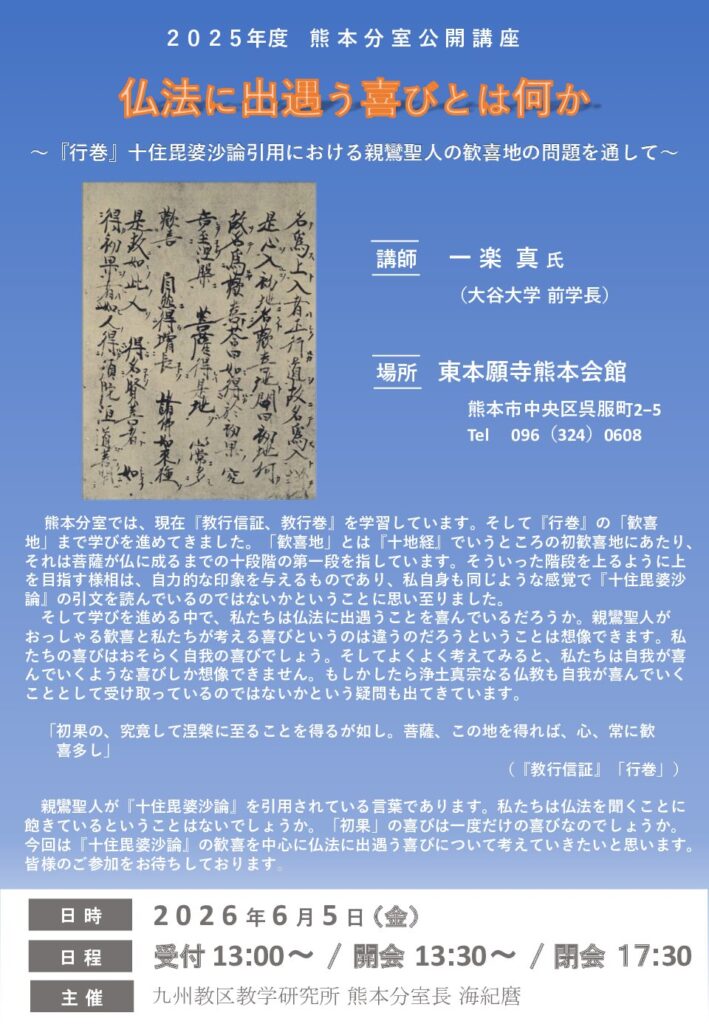 2025年度 熊本分室公開講座
仏法に出遇う喜びとは何か
～『行巻』十住毘婆沙論引用における親鸞聖人の歓喜地の問題を通して～
講師 一楽 真 氏
（大谷大学 前学長）
場所 東本願寺熊本会館
熊本市中央区呉服町2−5
Tel 096（324）0608
熊本分室では、現在『教行信証、教行巻』を学習しています。そして『行巻』の「歓喜
地」まで学びを進めてきました。「歓喜地」とは『十地経』でいうところの初歓喜地にあたり、
それは菩薩が仏に成るまでの十段階の第一段を指しています。そういった階段を上るように上
を目指す様相は、自力的な印象を与えるものであり、私自身も同じような感覚で『十住毘婆沙
論』の引文を読んでいるのではないかということに思い至りました。
そして学びを進める中で、私たちは仏法に出遇うことを喜んでいるだろうか。親鸞聖人が
おっしゃる歓喜と私たちが考える喜びというのは違うのだろうということは想像できます。私
たちの喜びはおそらく自我の喜びでしょう。そしてよくよく考えてみると、私たちは自我が喜
んでいくような喜びしか想像できません。もしかしたら浄土真宗なる仏教も自我が喜んでいく
こととして受け取っているのではないかという疑問も出てきています。
「初果の、究竟して涅槃に至ることを得るが如し。菩薩、この地を得れば、心、常に歓
喜多し」
（『教行信証』「行巻」）
親鸞聖人が『十住毘婆沙論』を引用されている言葉であります。私たちは仏法を聞くことに
飽きているということはないでしょうか。「初果」の喜びは一度だけの喜びなのでしょうか。
今回は『十住毘婆沙論』の歓喜を中心に仏法に出遇う喜びについて考えていきたいと思います。
皆様のご参加をお待ちしております。
日時 2026年6月5日（金）
日程 受付 13:00～ / 開会 13:30～ / 閉会 17:30
主催 九州教区教学研究所 熊本分室長 海紀麿